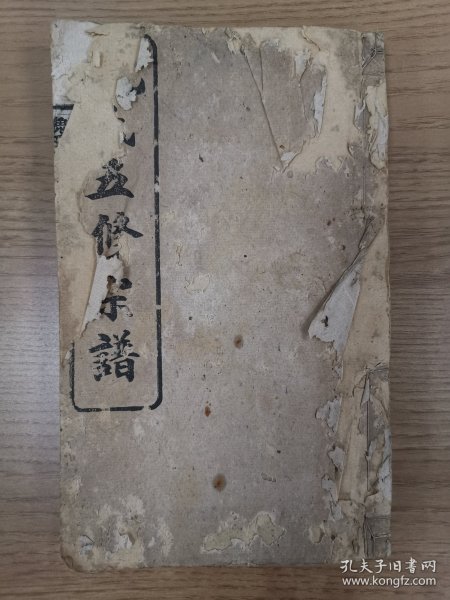 五修宗譜
孔夫子旧书网
www.kongfz.com